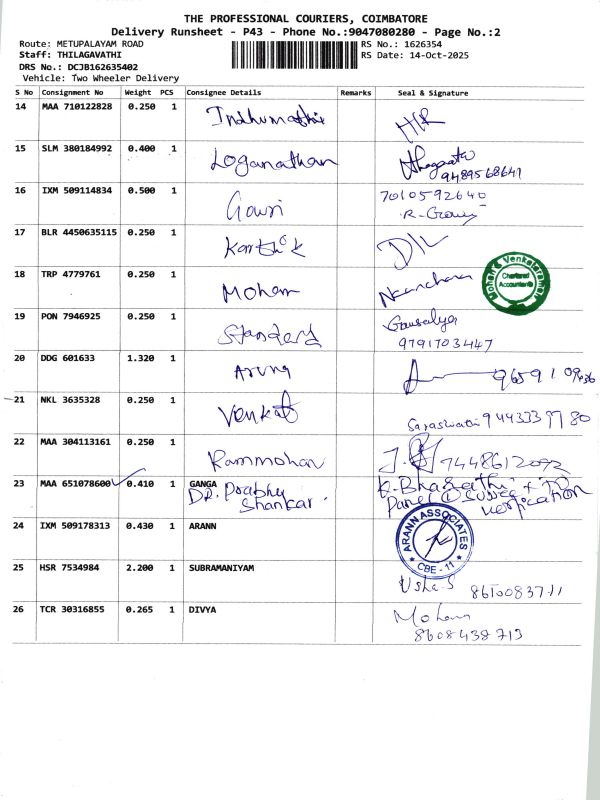 THE PROFESSIONAL COURIERS, COIMBATORE
Delivery Runsheet - P43 - Phone No.:9047080280 - Page No.:2
Route: METUPALAYAM ROAD RS No.: 1626354
Staff: THILAGAVATHI RS Date: 14-Oct-2025
DRS No.: DCJB162635402
Vehicle: Two Wheeler Delivery
S No Consignment No Weight PCS Consignee Details Remarks Seal & Signature
14 MAA 710122828 0.250 1 Indhumathi
15 SLM 380184992 0.400 1 Loganathan
9489568641
16 IXM 509114834 0.500 1 Gowri 7010592640
R-Gowry
17 BLR 4450635115 0.250 1 Karthik
18 TRP 4779761 0.250 1 Mohan
Mohan & Venkataraman
Chartered
Accountants
19 PON 7946925 0.250 1 Standard Gousalya
9791703447
20 DDG 601633 1.320 1 Aruna
21 NKL 3635328 0.250 1 Venkat Saraswathi
22 MAA 304113161 0.250 1 Rammohan 7448612092
23 MAA 651078600 0.410 1 GANGA
Dr. Prabhu
Shankar K. Bharathi
verification
24 IXM 509178313 0.430 1 ARANN
ARANN ASSOCIATES
CBE - 11
25 HSR 7534984 2.200 1 SUBRAMANIYAM
Usha.S
26 TCR 30316855 0.265 1 DIVYA Mohan
8608438713